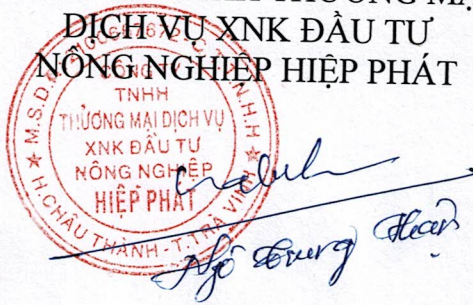 DỊCH VỤ XNK ĐẦU TƯ
NÔNG NGHIỆP HIỆP PHÁT
CÔNG
TNHH
THƯƠNG MẠI DỊCH VỤ
XNK ĐẦU TƯ
NÔNG NGHIỆP
HIỆP PHÁT
H.CHÂU THÀNH - T.TRÀ VINH
Ngô Trung